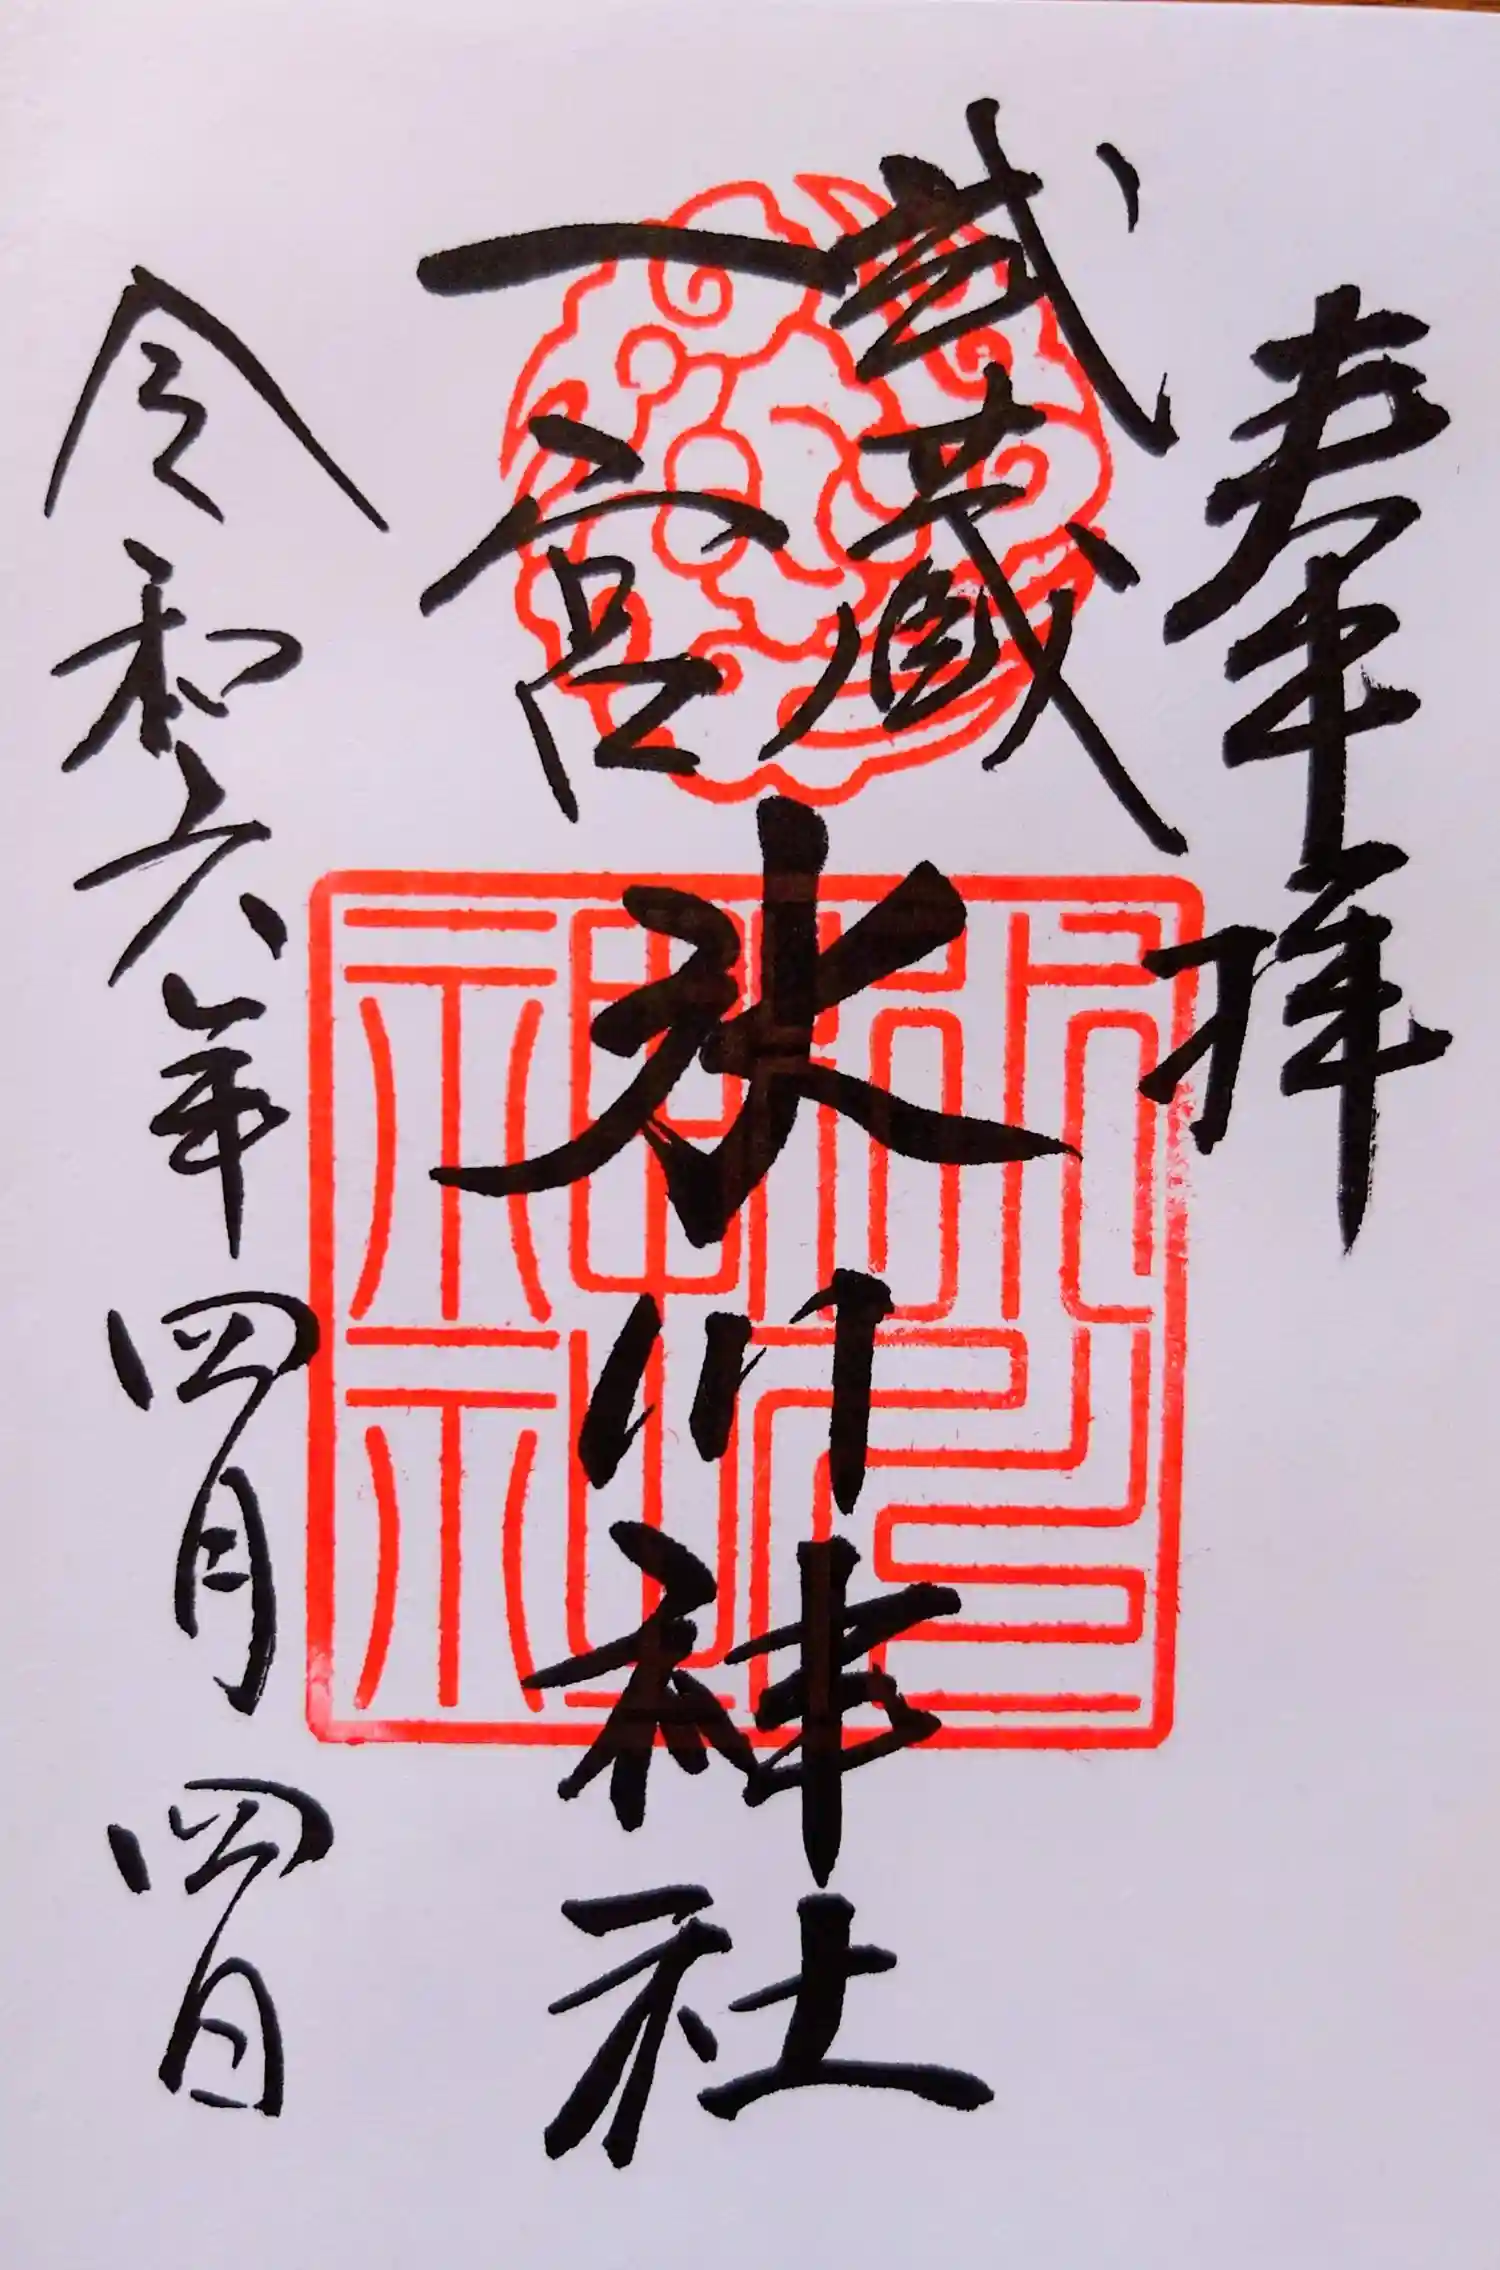 奉拝
武蔵
一宮
氷川神社
令和六年四月四日